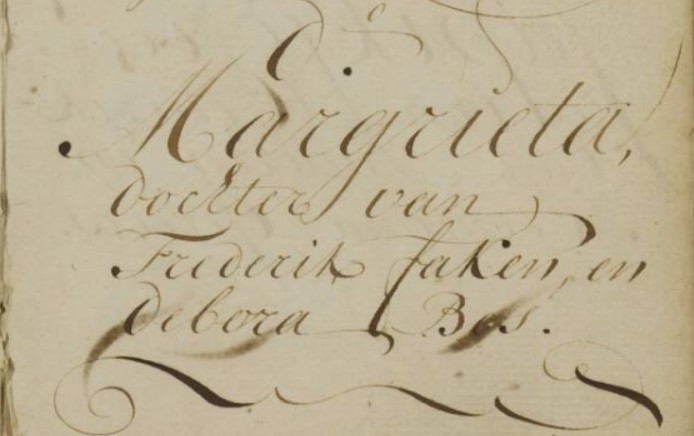 Margrieta,
dochter van
Frederik faken, en
debora Bos.